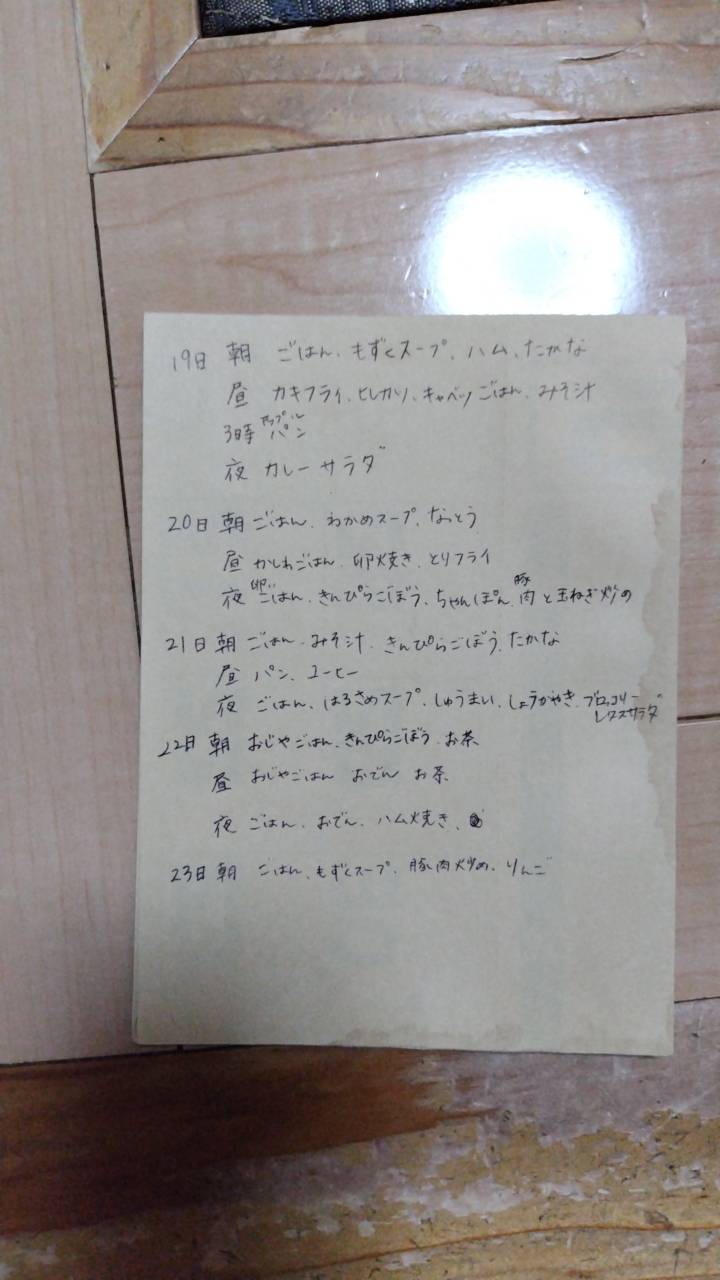 19日 朝 ごはん、もずくスープ、ハム、たかな
昼 カキフライ、ヒレカツ、キャベツ ごはん、みそ汁
アップル
3時 パン
夜 カレー サラダ
20日 朝 ごはん、わかめスープ、なっとう
昼 かしわごはん、卵焼き、とりフライ
夜 卵ごはん、きんぴらごぼう、ちゃんぽん、豚肉と玉ねぎ炒め
21日 朝 ごはん、みそ汁、きんぴらごぼう、たかな
昼 パン、コーヒー
夜 ごはん、はるさめスープ、しゅうまい、しょうがやき、ブロッコリー
レタスサラダ
22日 朝 おじやごはん、きんぴらごぼう、お茶
昼 おじやごはん おでん お茶
夜 ごはん、おでん、ハム焼き、
23日 朝 ごはん、もずくスープ、豚肉炒め、りんご